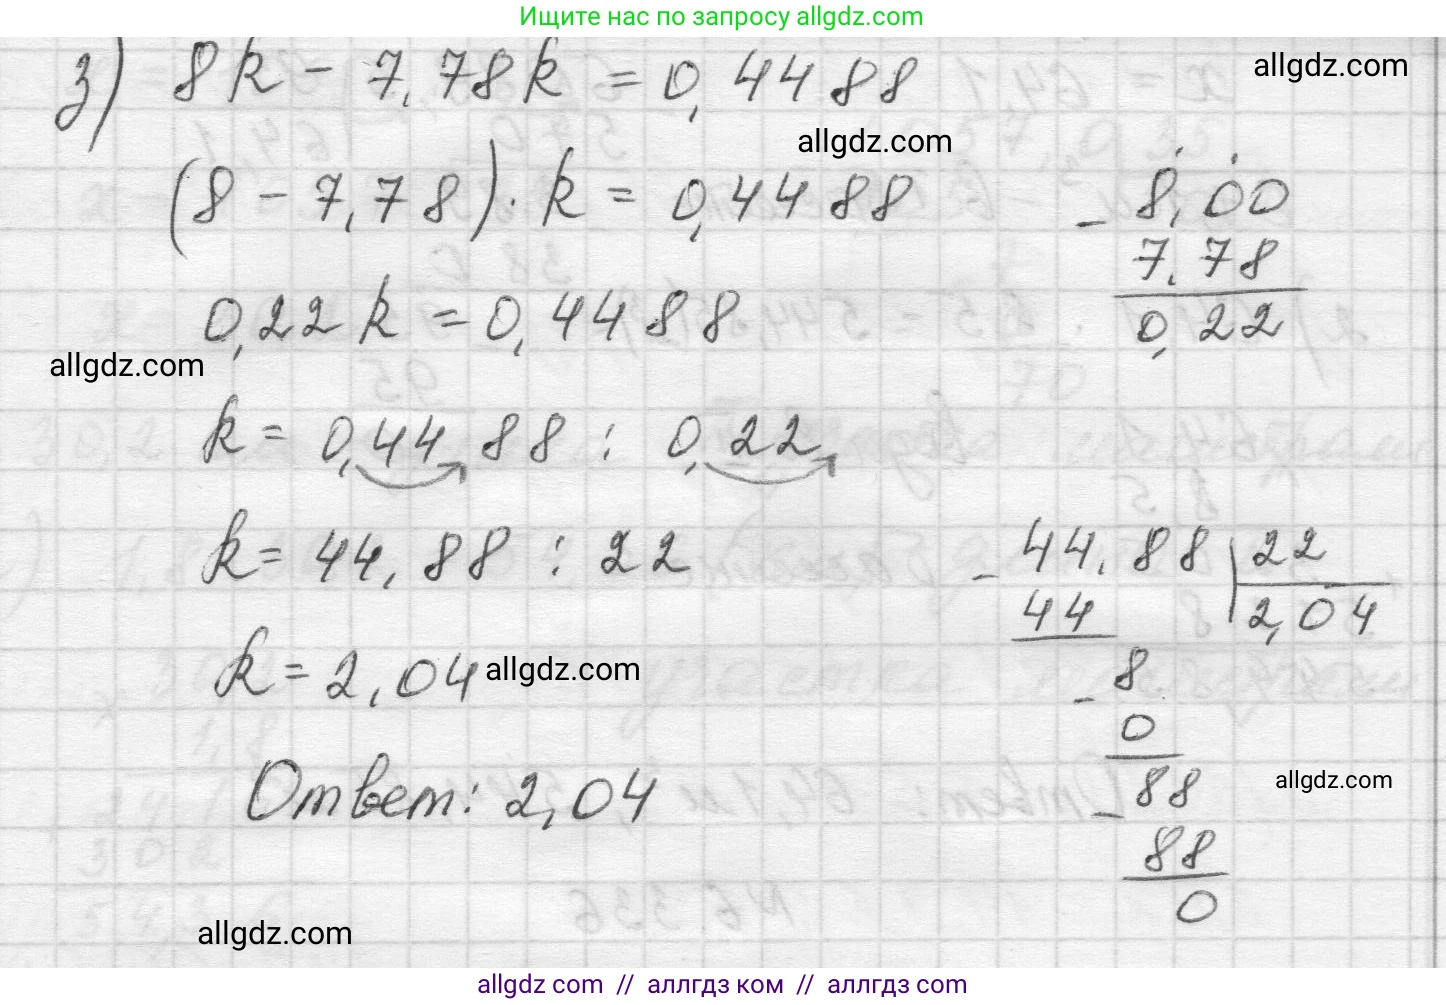 Ищите нас по запросу allgdz.com
allgdz.com
з) 8k - 7,78k = 0,4488
allgdz.com
(8 - 7,78) · k = 0,4488
0,22k = 0,4488
allgdz.com
k = 0,4488 : 0,22
k = 44,88 : 22
k = 2,04
allgdz.com
Ответ: 2,04
- 8,00
7,78
0,22
- 44,88 | 22
44 2,04
- 8
0
- 88
88
0
allgdz.com
allgdz.com
allgdz.com // аллгдз ком // аллгдз.com